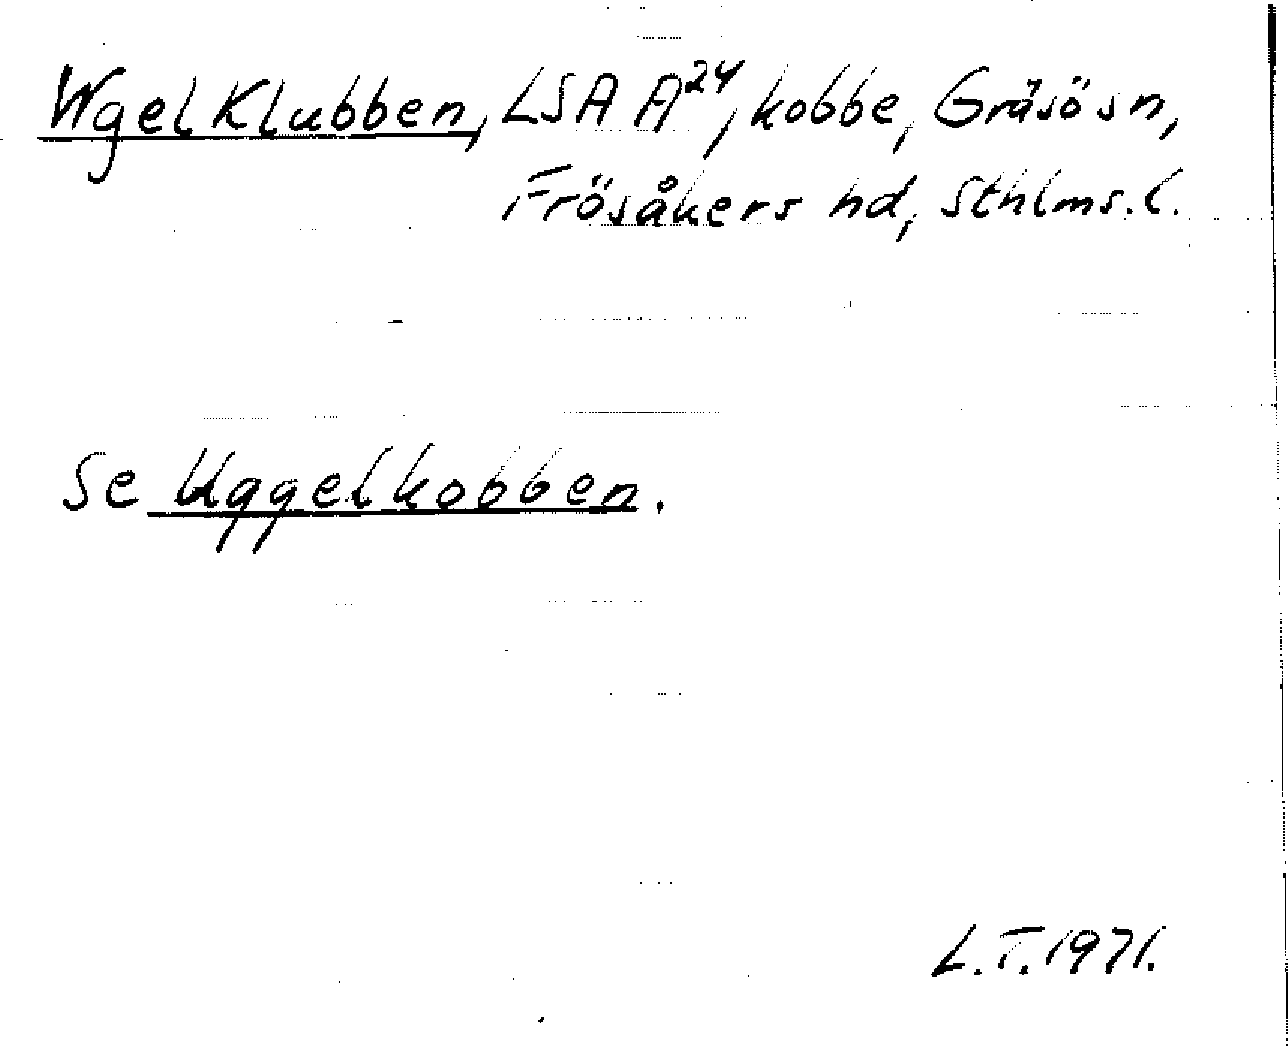 Wgel Klubben, LSA A²⁴, kobbe, Gräsö sn,
Frösåkers hd, Sthlms. l.
Se Uggelkobben.
L.T. 1971.